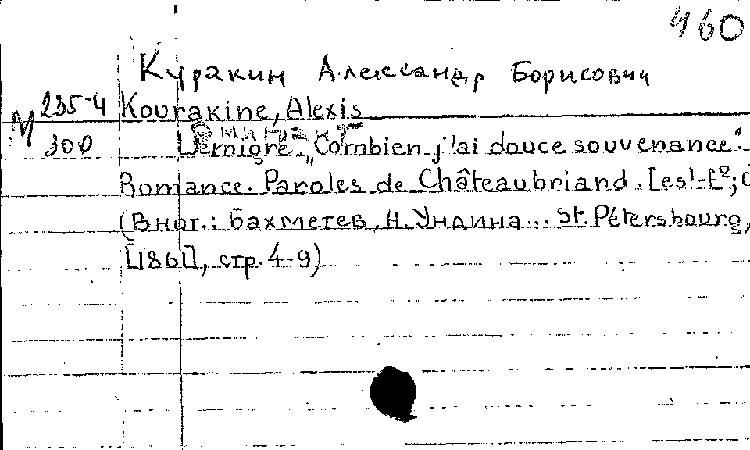 460
Куракин Александр Борисович
М 235-4 Kourakine, Alexis
300 L'émigré. „Combien j'ai douce souvenance".
Romance. Paroles de Châteaubriand. [es¹-f²;
(В нот.: Бахметев, Н. Ундина... St. Pétersbourg,
[186], стр. 4-9)